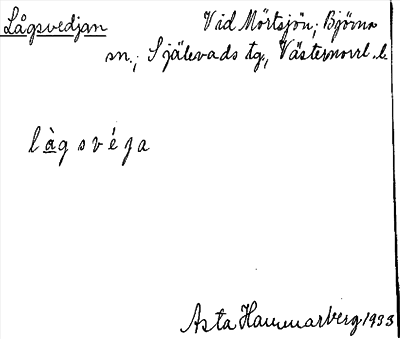 Lågsvedjan Vid Mörtsjön; Björna
sn., Själevads tg., Västernorrl. l.
låg s v é ȷ a
Asta Hammarberg 1933